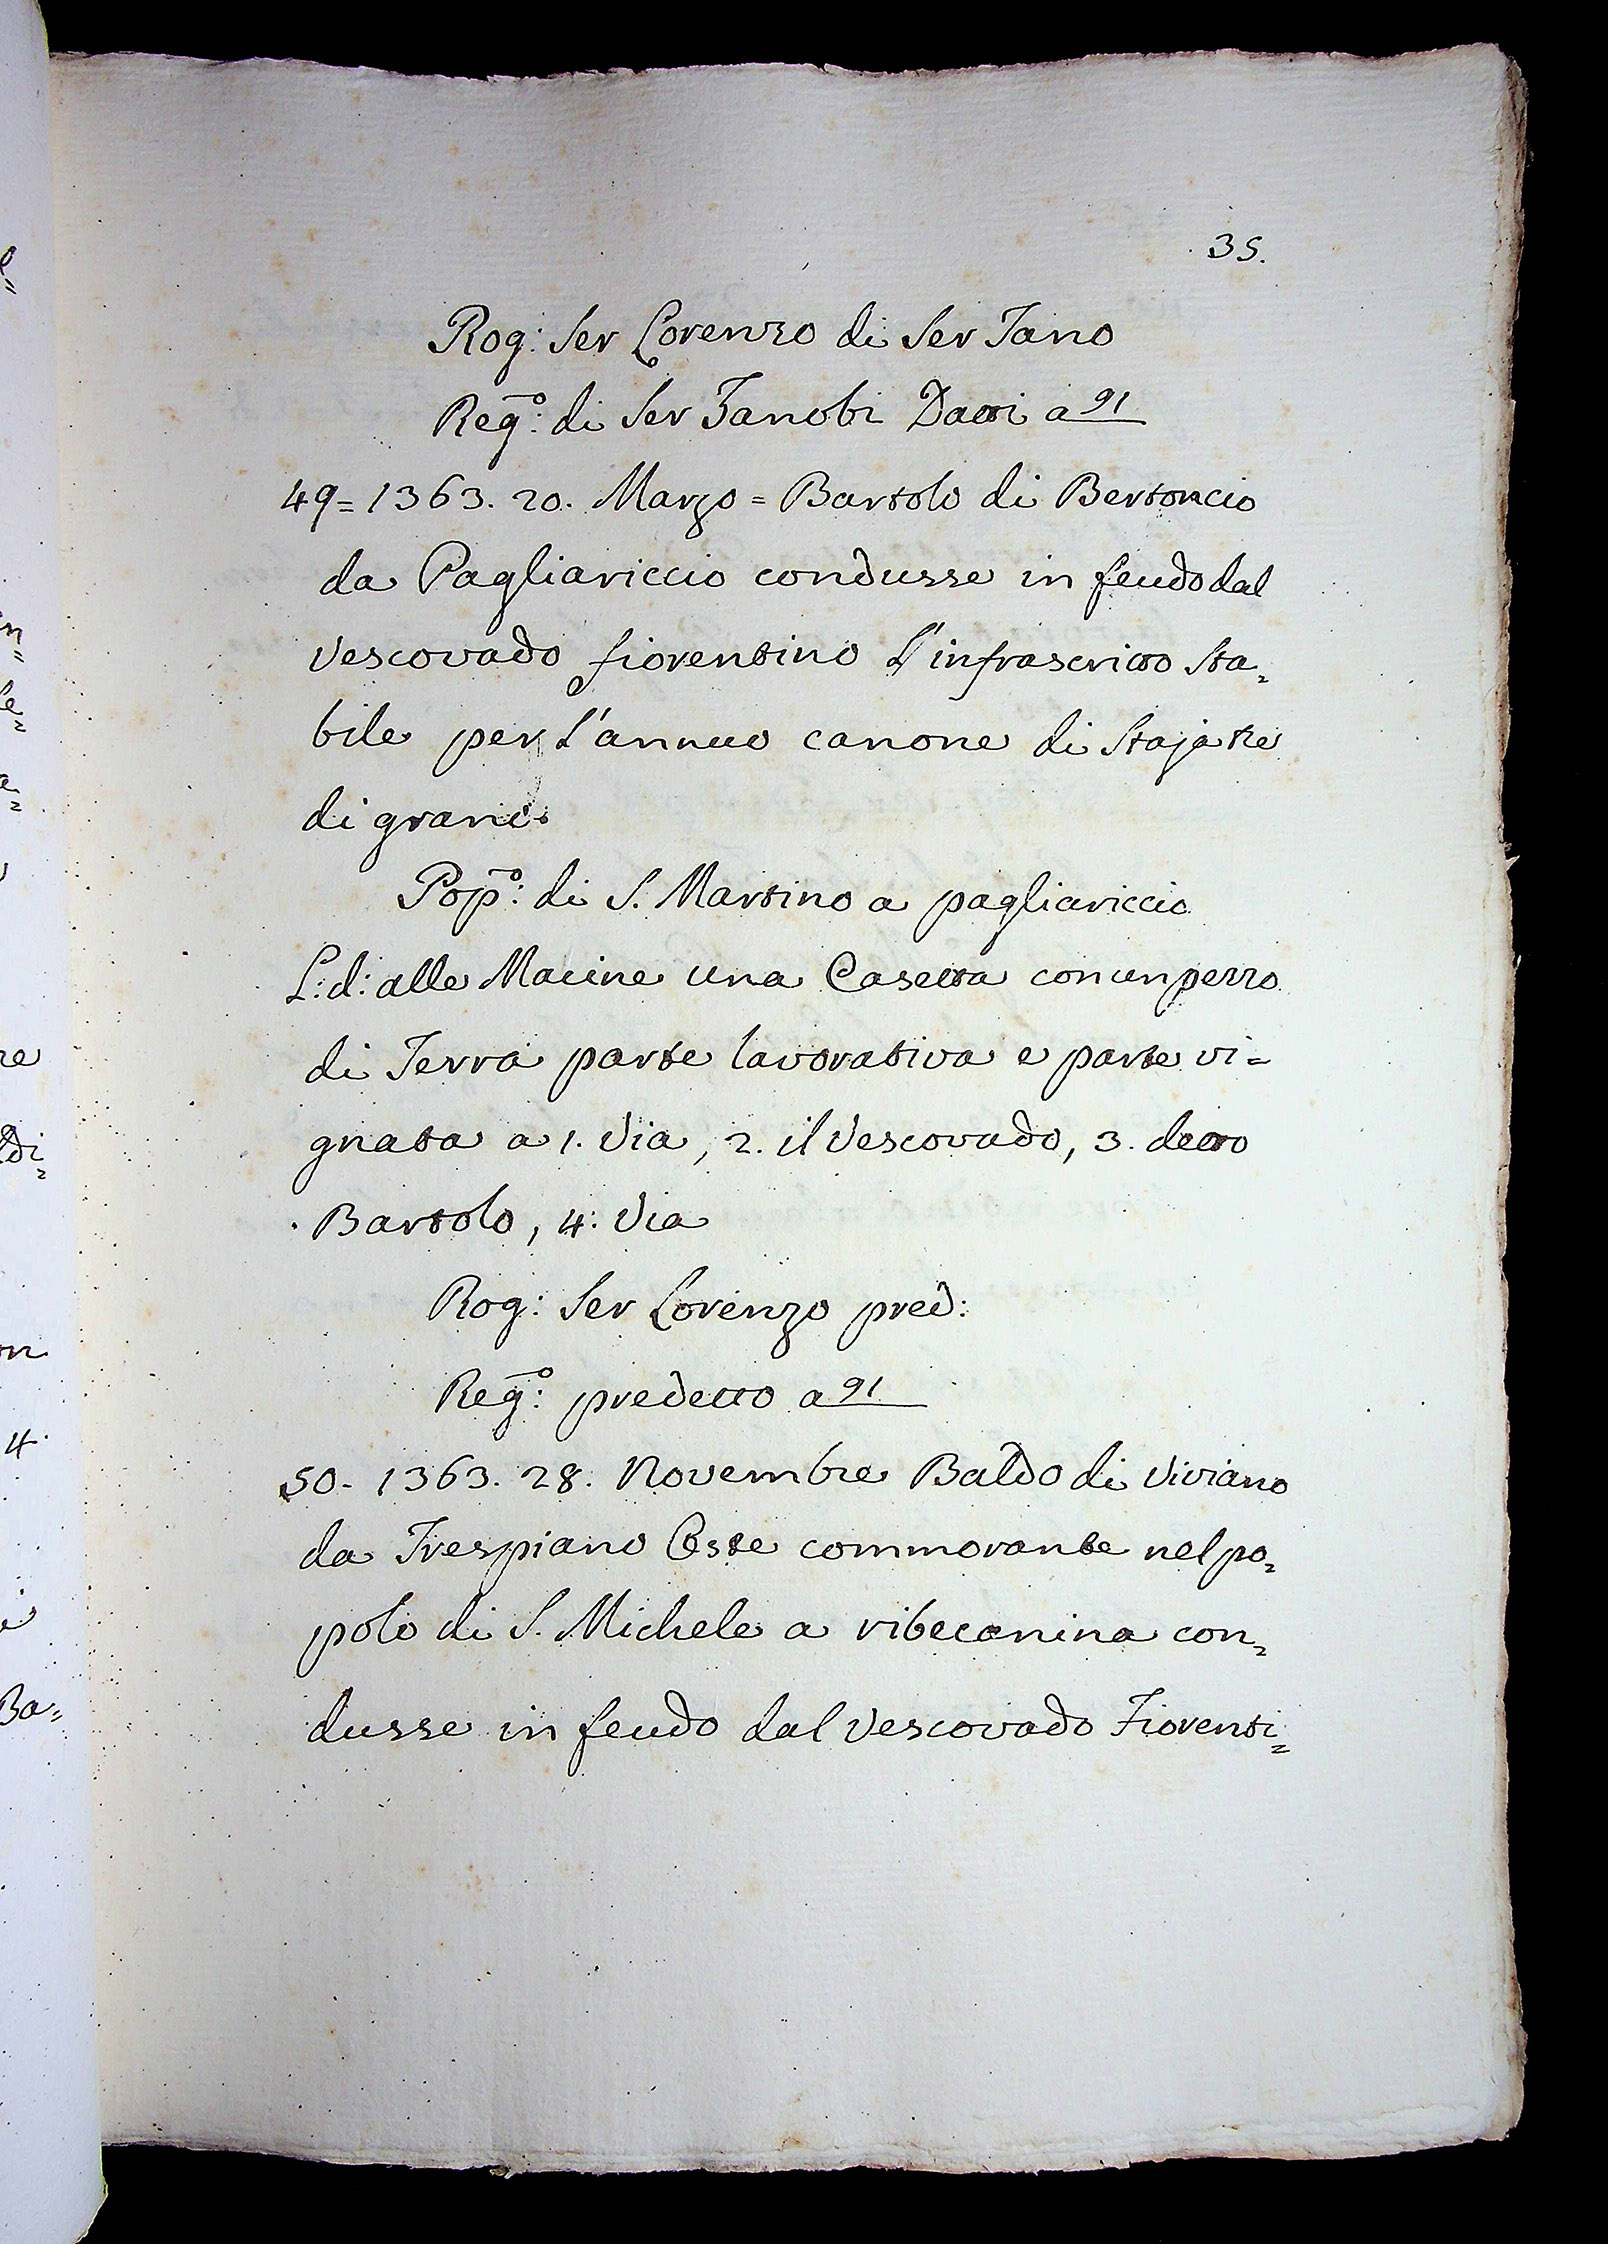 35.
Rog: Ser Lorenzo di Ser Tano
Reg.º: di Ser Zanobi Datti a 91
49= 1363. 20. Marzo = Bartolo di Bertoncio
da Pagliariccio condusse in feudo dal
Vescovado fiorentino L'infrascritto Sta=
bile per L'annuo canone di Staja tre
di grano.
Pop.º: di S. Martino a pagliariccio
L: d: alle Macine una Casetta con un pezzo
di Terra parte lavorativa e parte vi=
gnata a 1. Via, 2. il Vescovado, 3. detto
Bartolo, 4: Via
Rog: Ser Lorenzo pred:
Reg.º: predetto a 91
50. 1363. 28. Novembre Baldo di Viviano
da Trespiano Oste commorante nel po=
polo di S. Michele a ribecanina con=
dusse in feudo dal Vescovado Fiorenti=